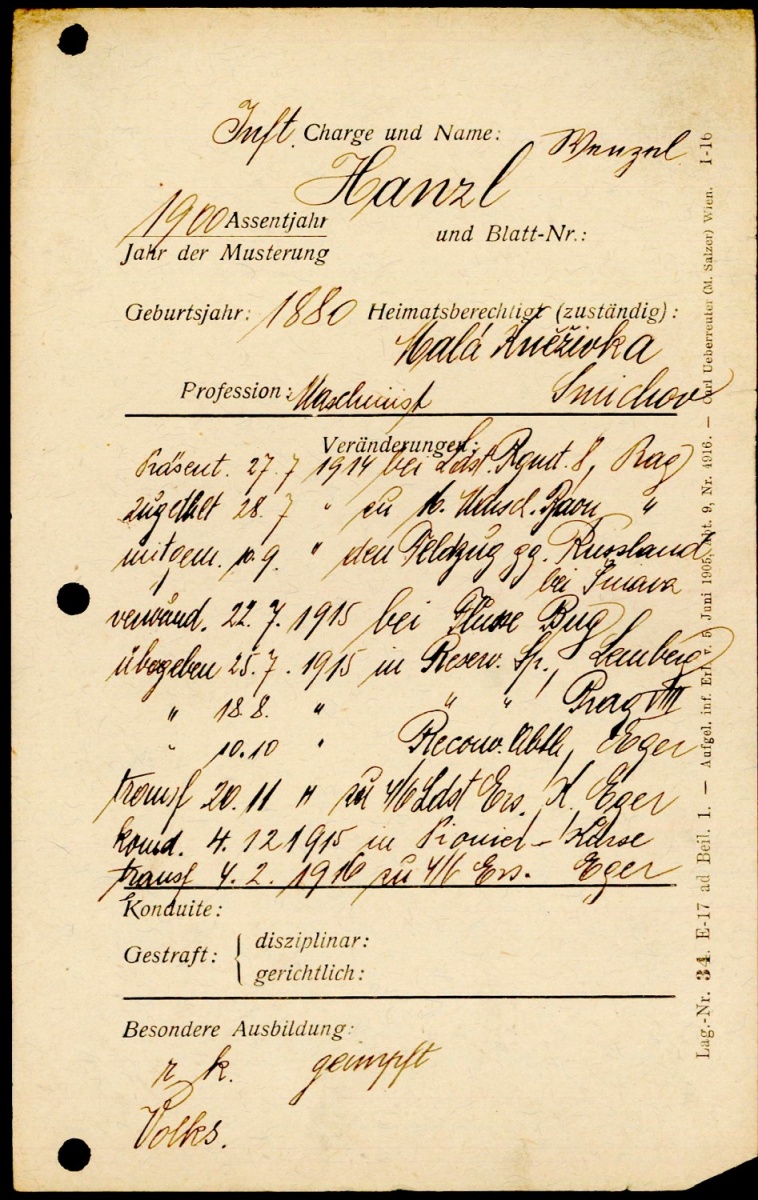 Inft. Charge und Name: Wenzel
Hanzl
1900 Assentjahr
Jahr der Musterung
und Blatt-Nr.:
Geburtsjahr: 1880 Heimatsberechtigt (zuständig):
Malá Kněživka
Profession: Maschinist Smichov
Veränderungen:
Präsent. 27. 7 1914 bei Ldst. Rgmt. 8, Prag
zugetheilt 28. 7 " zu 16. Marsch. Baon, "
mitgem. 10. 9. " den Feldzug gg. Russland
bei
verwund. 22. 7. 1915 bei Flusse Bug
übergeben 25. 7. 1915 in Reserv. Sp., Lemberg
" 18.8. " " " Prag VIII
" 10.10 " Reconv. Abth, Eger
transf 20. 11 " zu 4/6 Ldst Ers. K. Eger
komd. 4. 12 1915 in Pionier-Kurse
transf 4. 2. 1916 zu 4/6 Ers. Eger
Konduite:
Gestraft: { disziplinar:
gerichtlich:
Besondere Ausbildung:
r. k. geimpft
Volks.
Lag.-Nr. 34. E-17 ad Beil. 1. — Aufgel. inf. Erl. v. 5. Juni 1905, Abt. 9, Nr. 4916. — Carl Ueberreuter (M. Salzer) Wien. I-16